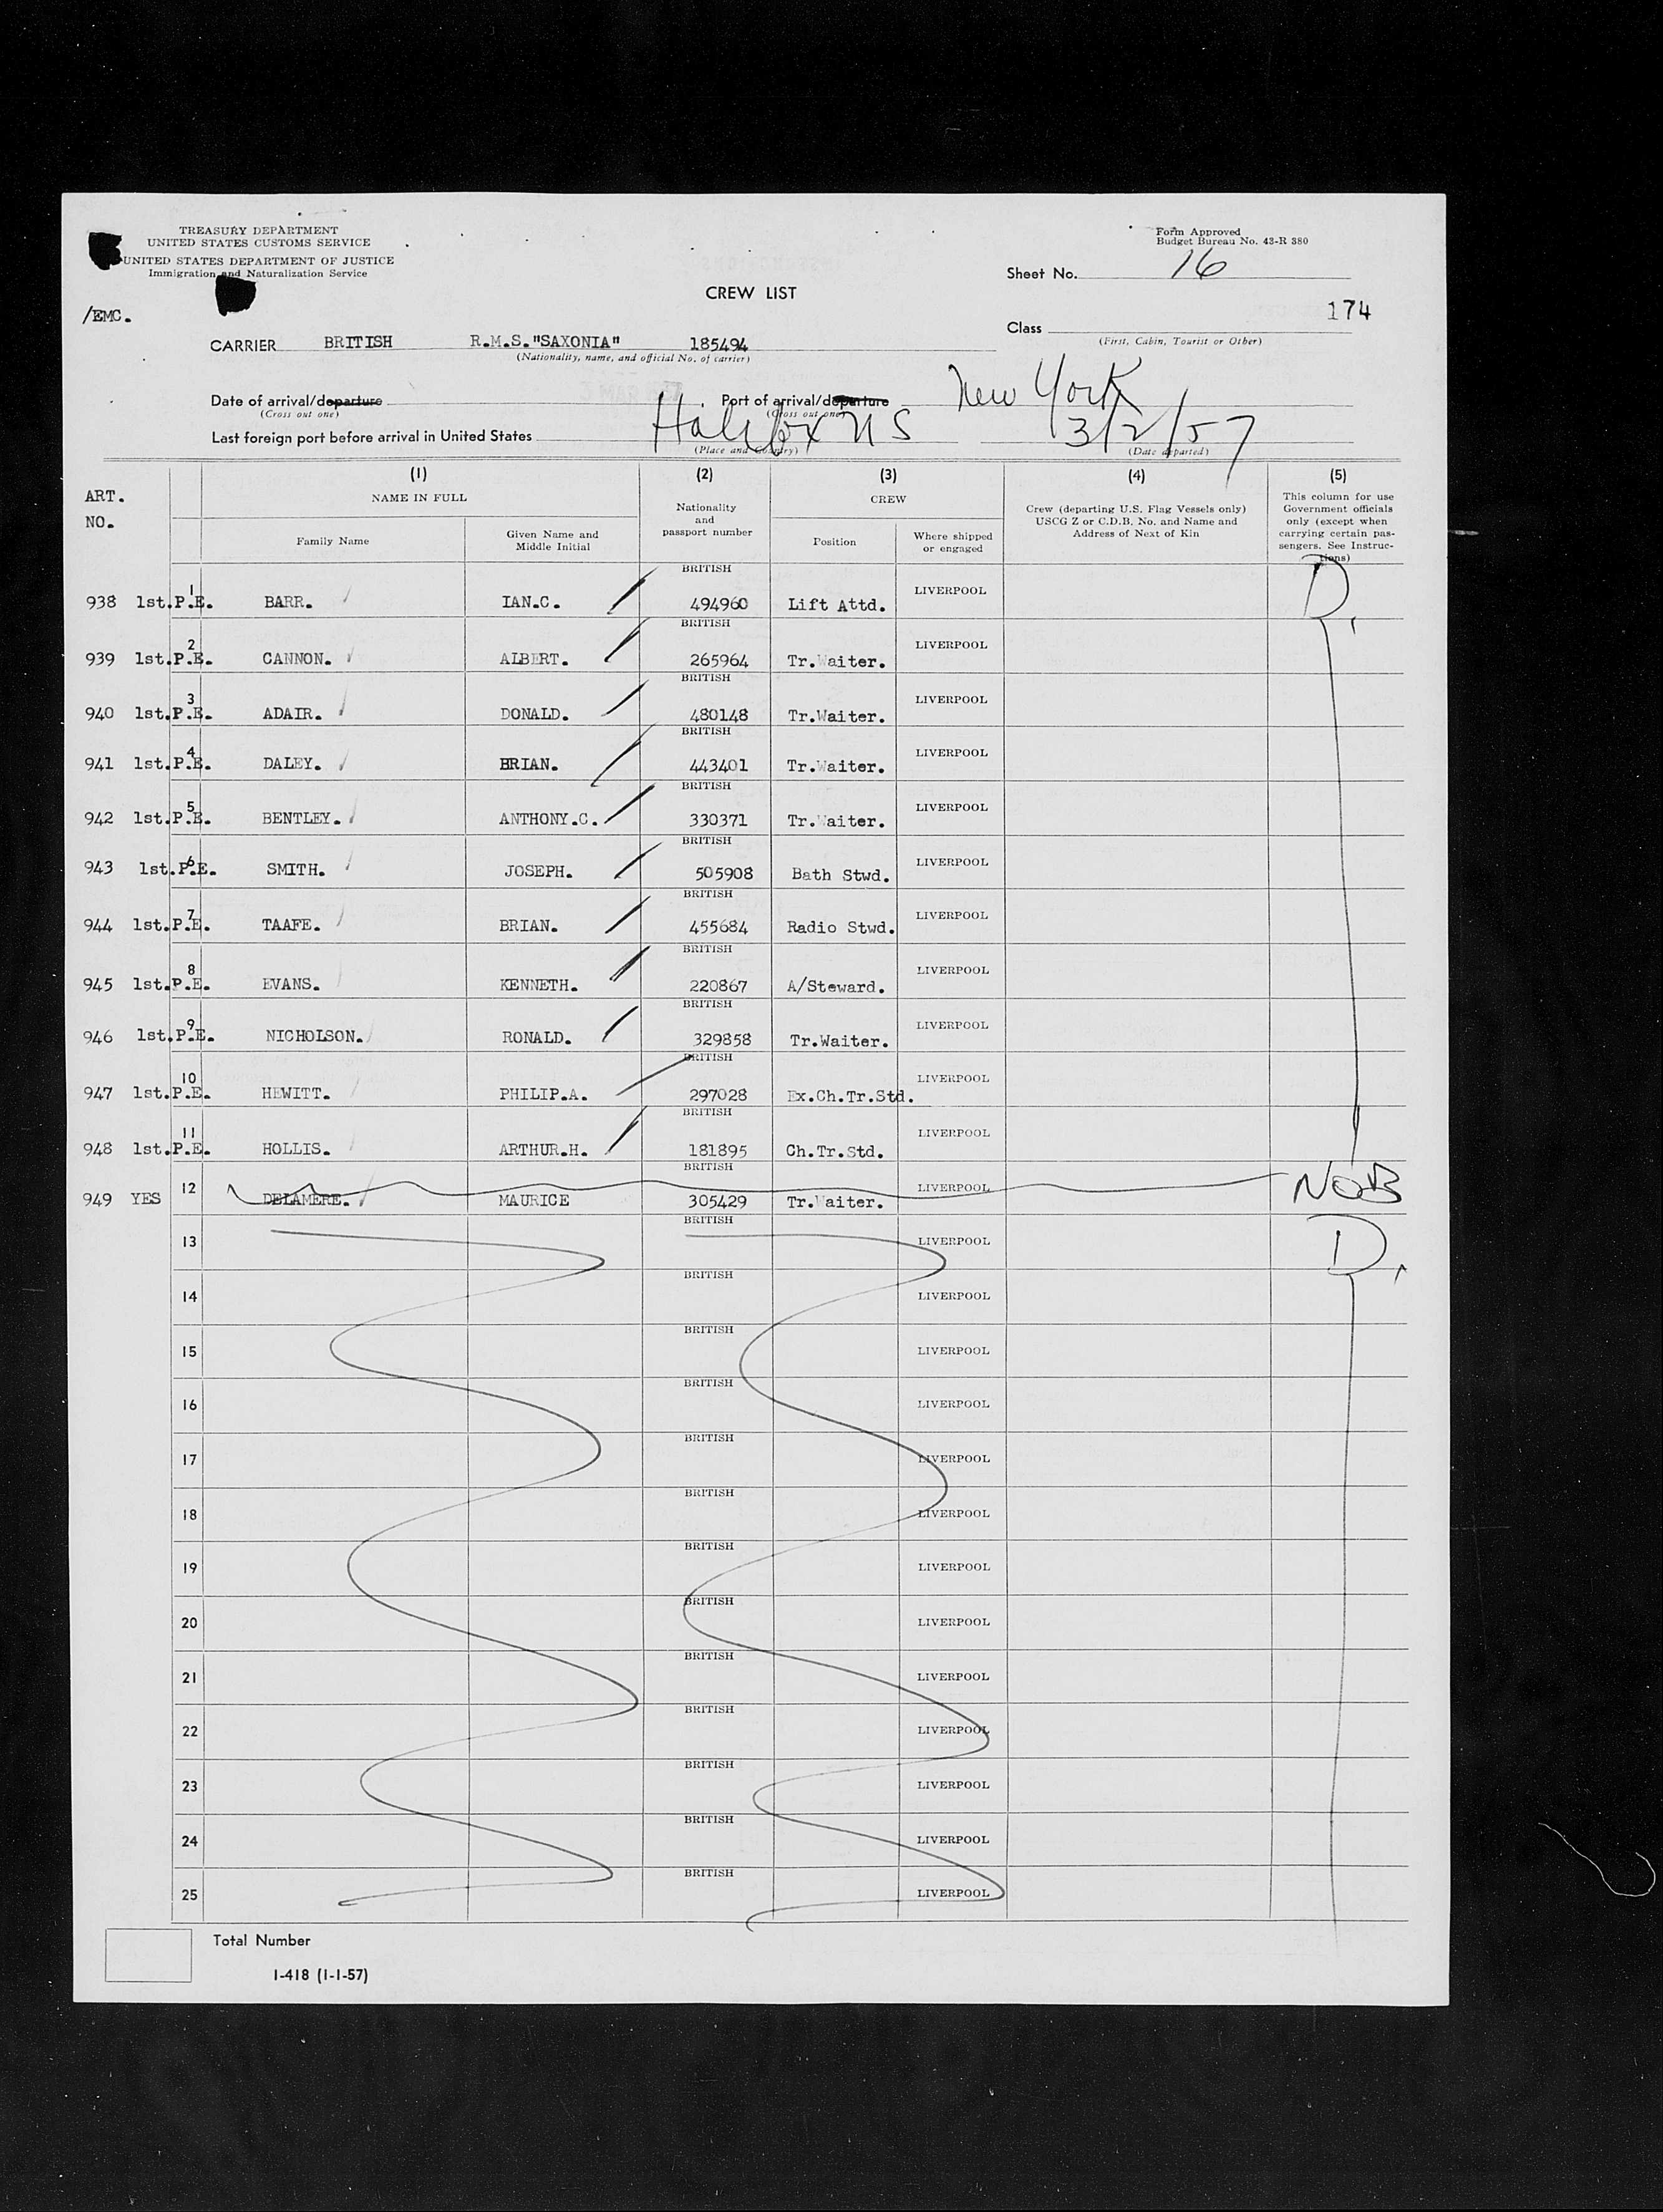 TREASURY DEPARTMENT
UNITED STATES CUSTOMS SERVICE
UNITED STATES DEPARTMENT OF JUSTICE
Immigration and Naturalization Service
Form Approved
Budget Bureau No. 43-R 380
Sheet No. 16
CREW LIST
/EMC.
174
Class
(First, Cabin, Tourist or Other)
CARRIER BRITISH R.M.S."SAXONIA" 185494
(Nationality, name, and official No. of carrier)
Date of arrival/departure Port of arrival/departure New York
(Cross out one) (Cross out one)
Last foreign port before arrival in United States Halifax NS 3/2/57
(Place and Country) (Date departed)
ART. NO.
(1) (2) (3) (4) (5)
NAME IN FULL
Family Name
Given Name and Middle Initial
Nationality and passport number
CREW
Position
Where shipped or engaged
Crew (departing U.S. Flag Vessels only)
USCG Z or C.D.B. No. and Name and
Address of Next of Kin
This column for use
Government officials
only (except when
carrying certain pas-
sengers. See Instruc-
tions)
938 1st.P.E. 1 BARR. IAN.C. BRITISH 494960 Lift Attd. LIVERPOOL D.
939 1st.P.E. 2 CANNON. ALBERT. BRITISH 265964 Tr.Waiter. LIVERPOOL
940 1st.P.E. 3 ADAIR. DONALD. BRITISH 480148 Tr.Waiter. LIVERPOOL
941 1st.P.E. 4 DALEY. BRIAN. BRITISH 443401 Tr.Waiter. LIVERPOOL
942 1st.P.E. 5 BENTLEY. ANTHONY.C. BRITISH 330371 Tr.Waiter. LIVERPOOL
943 1st.P.E. 6 SMITH. JOSEPH. BRITISH 505908 Bath Stwd. LIVERPOOL
944 1st.P.E. 7 TAAFE. BRIAN. BRITISH 455684 Radio Stwd. LIVERPOOL
945 1st.P.E. 8 EVANS. KENNETH. BRITISH 220867 A/Steward. LIVERPOOL
946 1st.P.E. 9 NICHOLSON. RONALD. BRITISH 329858 Tr.Waiter. LIVERPOOL
947 1st.P.E. 10 HEWITT. PHILIP.A. BRITISH 297028 Ex.Ch.Tr.Std. LIVERPOOL
948 1st.P.E. 11 HOLLIS. ARTHUR.H. BRITISH 181895 Ch.Tr.Std. LIVERPOOL
949 YES 12 DELAMERE. MAURICE BRITISH 305429 Tr.Waiter. LIVERPOOL NOB
13 BRITISH LIVERPOOL D.
14 BRITISH LIVERPOOL
15 BRITISH LIVERPOOL
16 BRITISH LIVERPOOL
17 BRITISH LIVERPOOL
18 BRITISH LIVERPOOL
19 BRITISH LIVERPOOL
20 BRITISH LIVERPOOL
21 BRITISH LIVERPOOL
22 BRITISH LIVERPOOL
23 BRITISH LIVERPOOL
24 BRITISH LIVERPOOL
25 BRITISH LIVERPOOL
Total Number
I-418 (1-1-57)